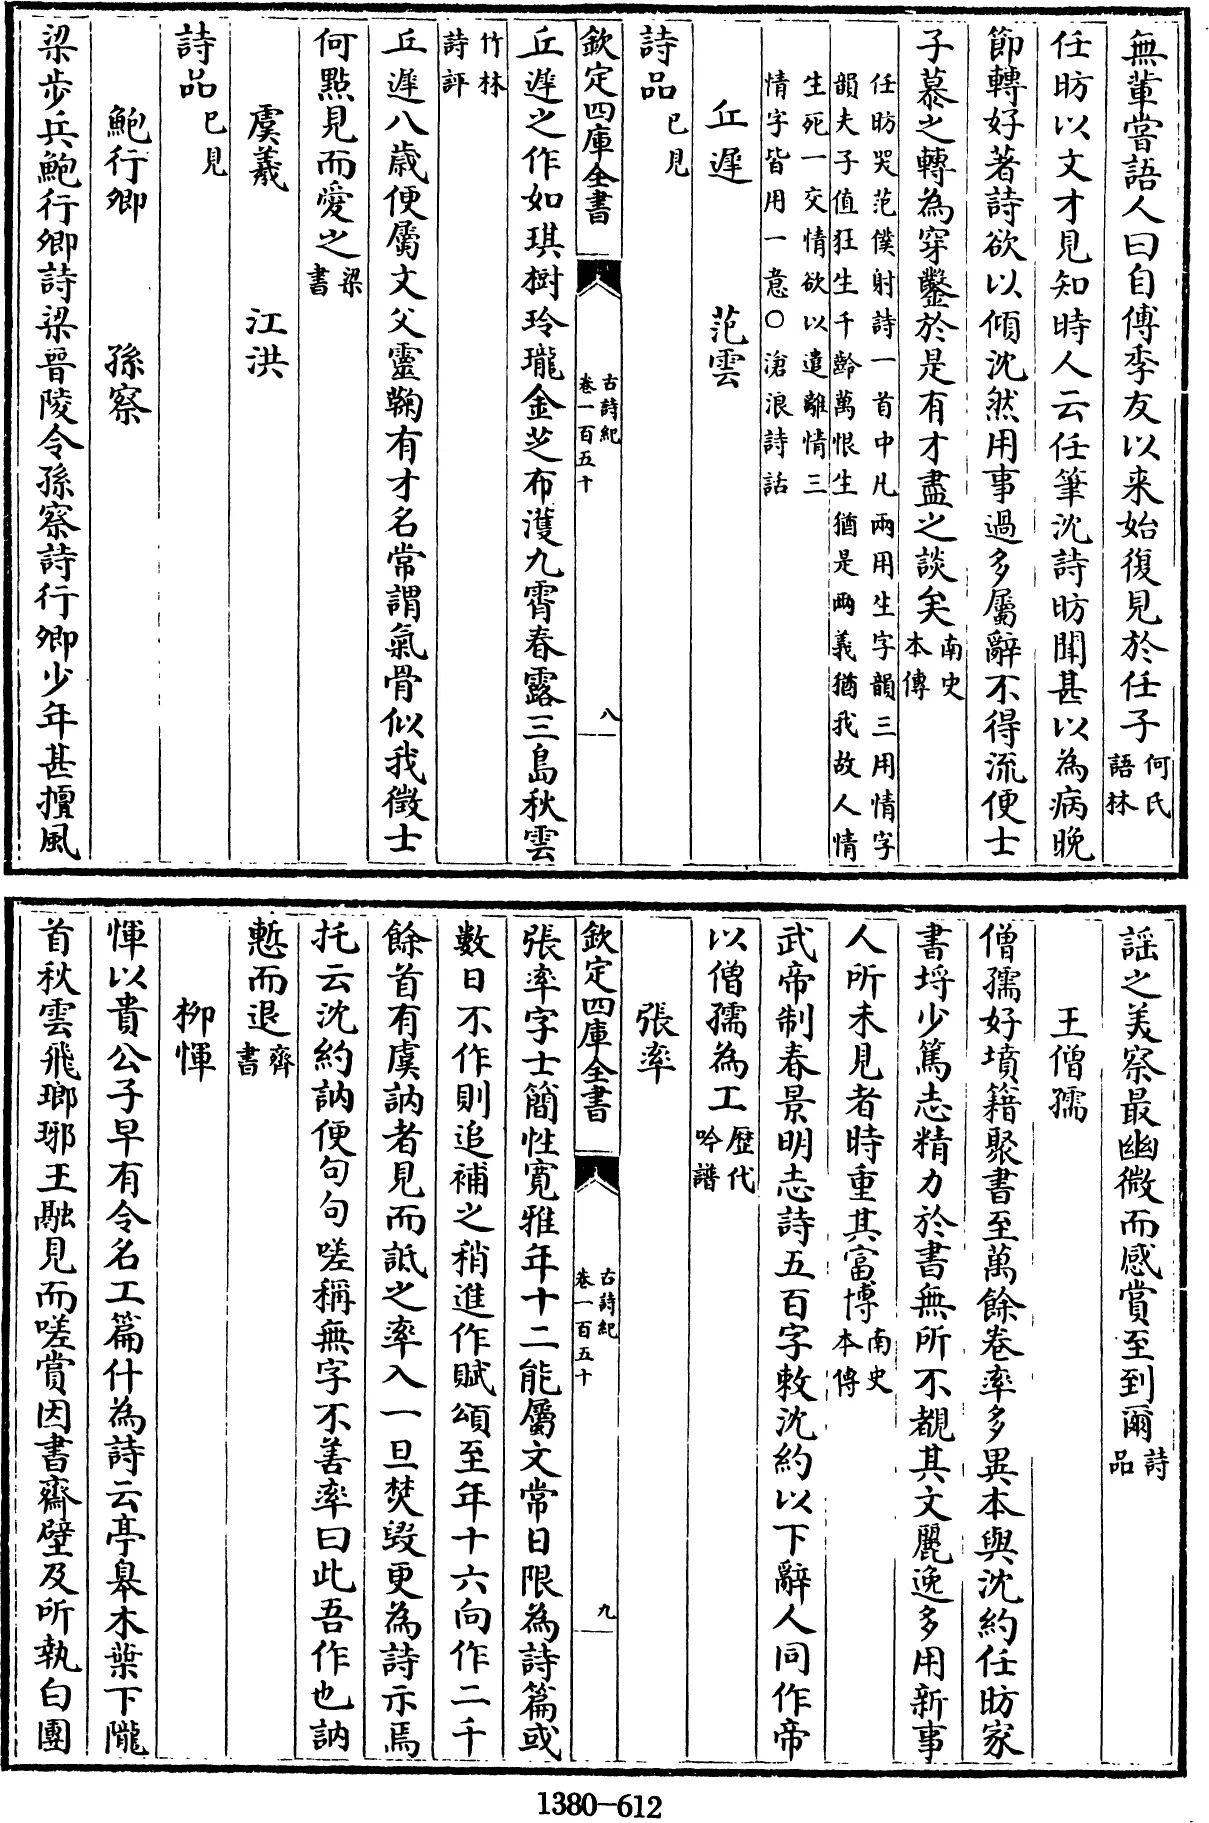 無輩嘗語人曰自傅季友以来始復見於任子何氏語林
任昉以文才見知時人云任筆沈詩昉聞甚以為病晚
節轉好著詩欲以傾沈然用事過多屬辭不得流便士
子慕之轉為穿鑿於是有才盡之談矣南史本傳
任昉哭范僕射詩一首中凡兩用生字韻三用情字
韻夫子值狂生千齡萬恨生猶是兩義猶我故人情
生死一交情欲以遣離情三
情字皆用一意○滄浪詩話
丘遲 范雲
詩品已見
欽定四庫全書 古詩紀卷一百五十 八
丘遲之作如琪樹玲瓏金芝布濩九霄春露三島秋雲
竹林詩評
丘遲八歲便屬文父靈鞠有才名常謂氣骨似我徵士
何點見而愛之梁書
虞羲 江洪
詩品已見
鮑行卿 孫察
梁步兵鮑行卿詩梁晉陵令孫察詩行卿少年甚擅風
謡之美察最幽微而感賞至到爾詩品
王僧孺
僧孺好墳籍聚書至萬餘卷率多異本與沈約任昉家
書埒少篤志精力於書無所不覩其文麗逸多用新事
人所未見者時重其富博南史本傳
武帝制春景明志詩五百字敕沈約以下辭人同作帝
以僧孺為工歷代吟譜
張率
欽定四庫全書 古詩紀卷一百五十 九
張率字士簡性寛雅年十二能屬文常日限為詩篇或
數日不作則追補之稍進作賦頌至年十六向作二千
餘首有虞訥者見而詆之率入一旦焚毀更為詩示焉
托云沈約訥便句句嗟稱無字不善率曰此吾作也訥
慙而退齊書
柳惲
惲以貴公子早有令名工篇什為詩云亭皋木葉下隴
首秋雲飛瑯琊王融見而嗟賞因書齋壁及所執白團
1380-612